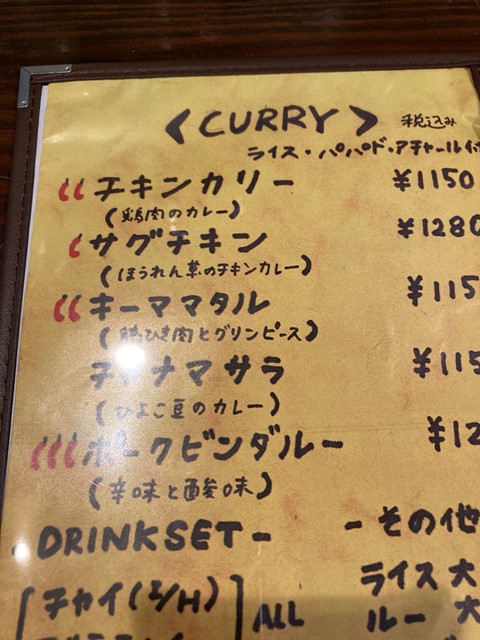 <CURRY> 税込み
ライス・パパド・アチャール付
チキンカリー ¥1150
(鶏肉のカレー)
サグチキン ¥1280
(ほうれん草のチキンカレー)
キーママタル ¥115
(鶏ひき肉とグリンピース)
チャナマサラ ¥115
(ひよこ豆のカレー)
ポークビンダルー ¥12
(辛味と酸味)
-DRINKSET- -その他
チャイ(I/H) ALL ライス 大
ルー 大